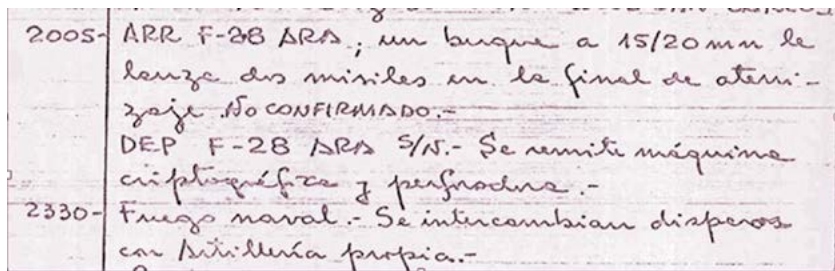 2005- ARR F-28 ARA; un buque a 15/20 mn le
lanza dos misiles en la final de aterri-
zaje. NO CONFIRMADO.-
DEP F-28 ARA S/N.- Se remite máquina
criptográfica y perforadora.-
2330- Fuego naval.- Se intercambian disparos
con Artillería propia.-